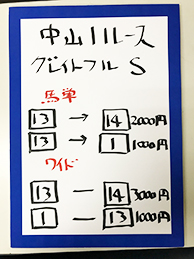 中山11レース
グレイトフルS
馬単
13 → 14 2000円
13 → 1 1000円
ワイド
13 ー 14 3000円
1 ー 13 1000円